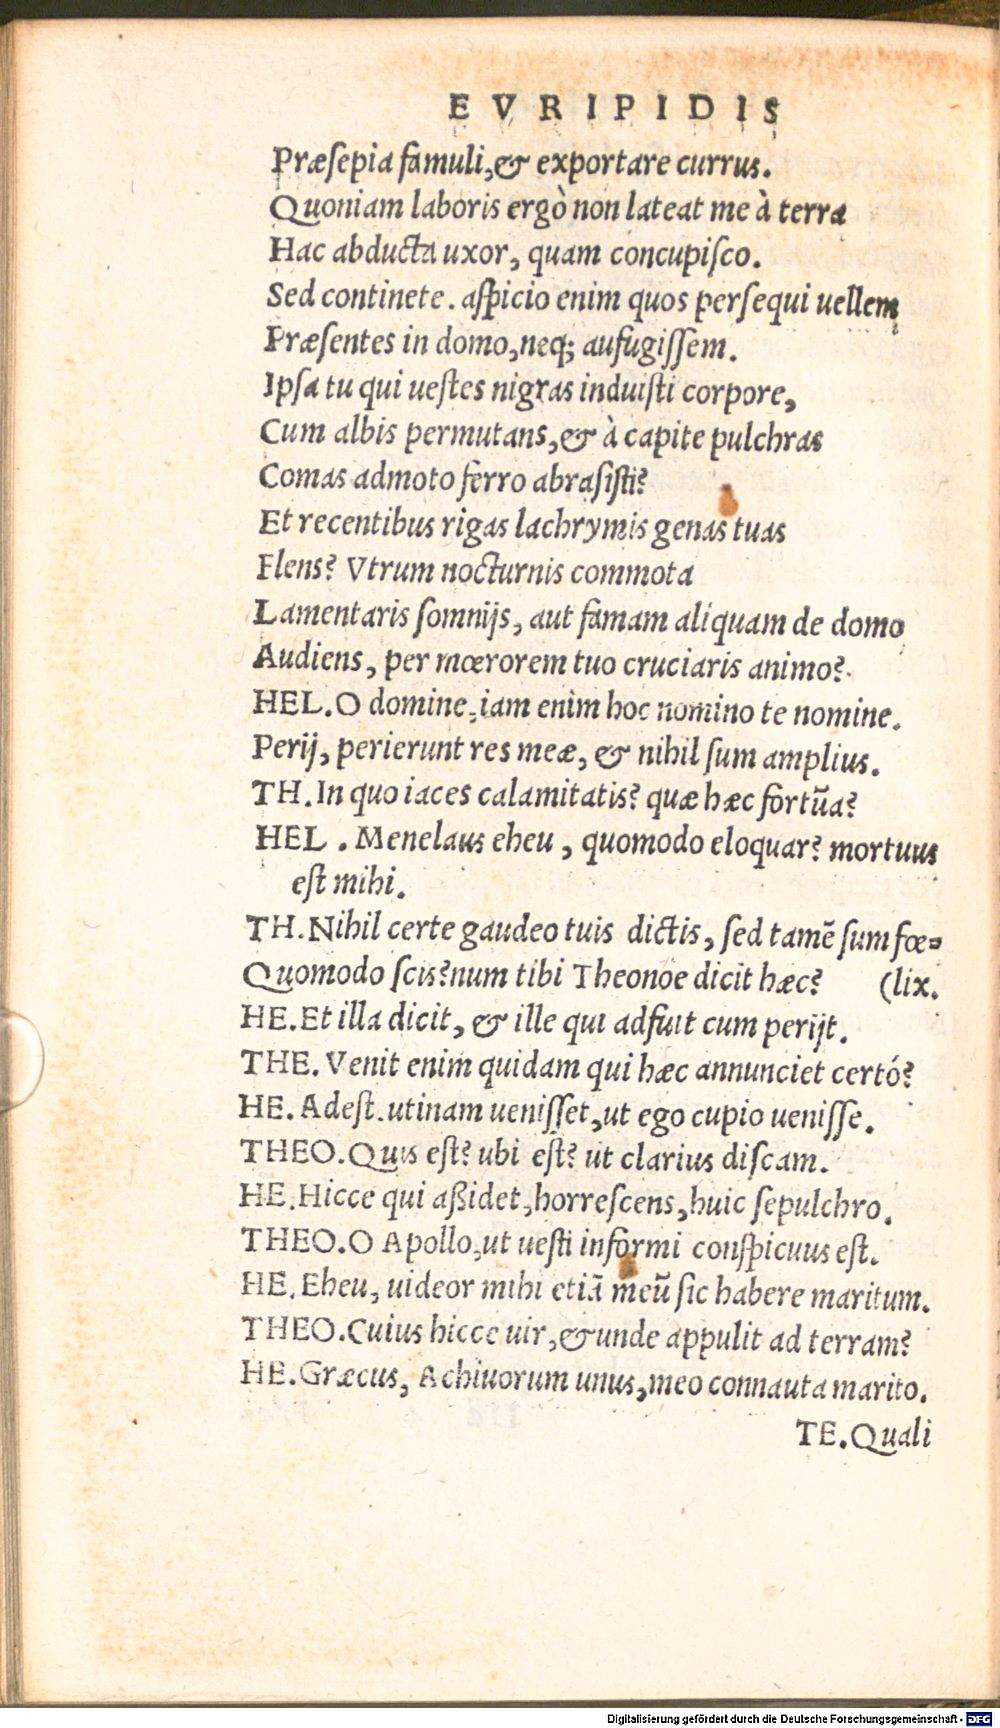 EVRIPIDIS
Præsepia famuli, & exportare currus.
Quoniam laboris ergò non lateat me à terra
Hac abducta uxor, quam concupisco.
Sed continete. aspicio enim quos persequi uellem
Præsentes in domo, neq; aufugissem.
Ipsa tu qui uestes nigras induisti corpore,
Cum albis permutans, & à capite pulchras
Comas admoto ferro abrasisti?
Et recentibus rigas lachrymis genas tuas
Flens? Vtrum nocturnis commota
Lamentaris somnijs, aut famam aliquam de domo
Audiens, per mœrorem tuo cruciaris animo?
HEL. O domine, iam enim hoc nomino te nomine.
Perij, perierunt res meæ, & nihil sum amplius.
TH. In quo iaces calamitatis? quæ hæc fortũa?
HEL. Menelaus eheu, quomodo eloquar? mortuus
est mihi.
TH. Nihil certe gaudeo tuis dictis, sed tamẽ sum fœ=
Quomodo scis? num tibi Theonoe dicit hæc? (lix.
HE. Et illa dicit, & ille qui adfuit cum perijt.
THE. Venit enim quidam qui hæc annunciet certó?
HE. Adest. utinam uenisset, ut ego cupio uenisse.
THEO. Quis est? ubi est? ut clarius discam.
HE. Hicce qui aßidet, horrescens, huic sepulchro.
THEO. O Apollo, ut uesti informi conspicuus est.
HE. Eheu, uideor mihi etiã meũ sic habere maritum.
THEO. Cuius hicce uir, & unde appulit ad terram?
HE. Græcus, Achiuorum unus, meo connauta marito.
TE. Quali
Digitalisierung gefördert durch die Deutsche Forschungsgemeinschaft - DFG